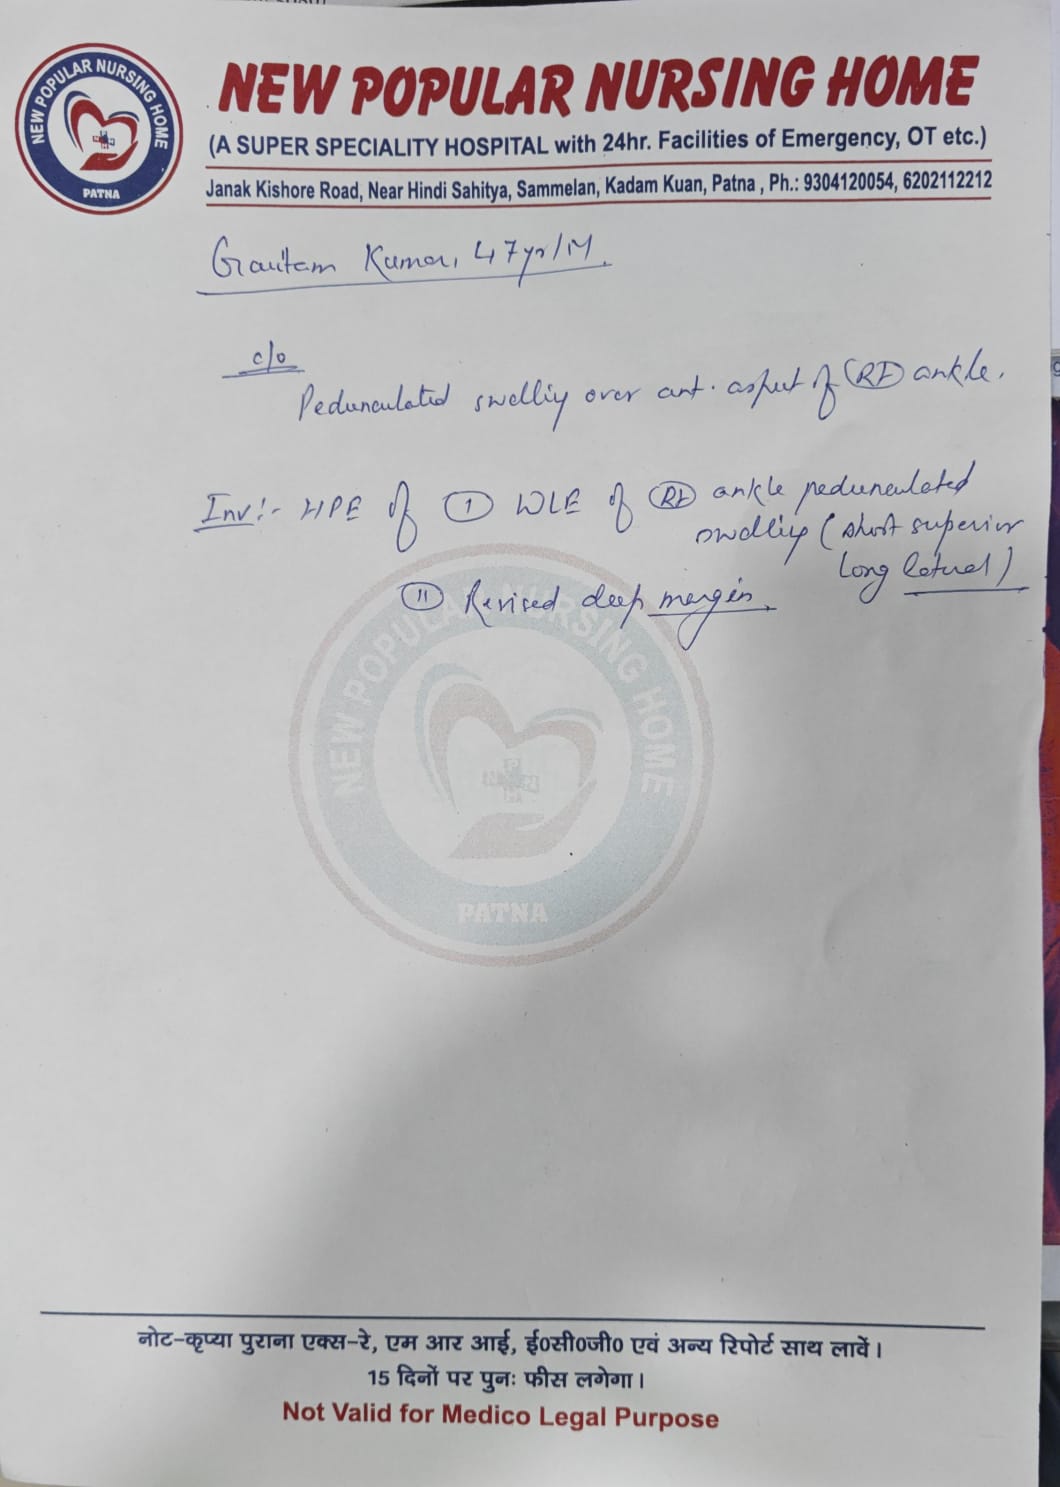 NEW POPULAR NURSING HOME
PATNA
NEW POPULAR NURSING HOME
(A SUPER SPECIALITY HOSPITAL with 24hr. Facilities of Emergency, OT etc.)
Janak Kishore Road, Near Hindi Sahitya, Sammelan, Kadam Kuan, Patna , Ph.: 9304120054, 6202112212
Gautam Kumar, 47yr/M.
c/o
Pedunculated swelling over ant. aspect of (Rt) ankle.
Inv:- HPE of (I) WLE of (Rt) ankle pedunculated
swelling (short superior
long lateral)
(II) Revised deep margin.
NEW POPULAR NURSING HOME
PATNA
नोट-कृप्या पुराना एक्स-रे, एम आर आई, ई०सी०जी० एवं अन्य रिपोर्ट साथ लावें।
15 दिनों पर पुनः फीस लगेगा।
Not Valid for Medico Legal Purpose